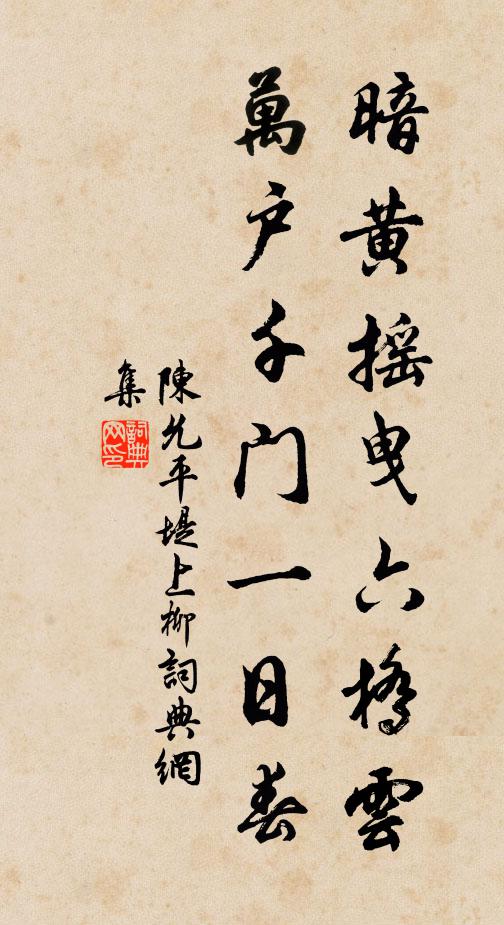 暗黃摇曳六橋雲
萬户千門一日春
陳允平堤上柳詞典網
集
詞典
网印